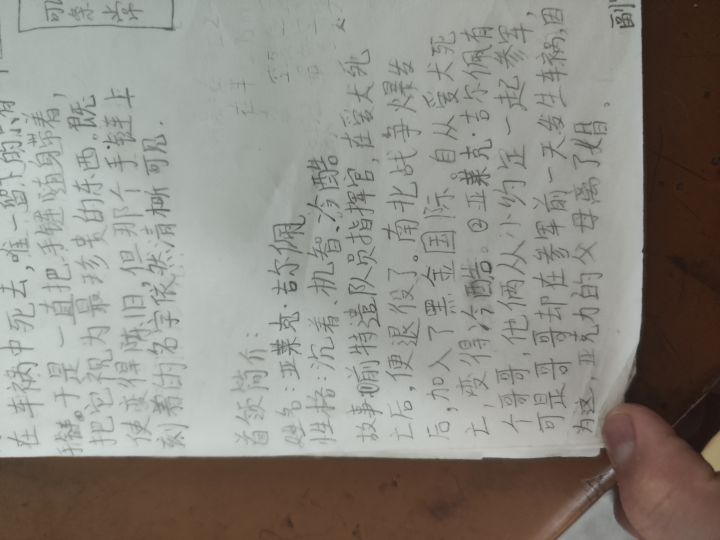 在车祸中死去,唯一留下的只有
手链。于是一直把手链随身带着,
把它视为最珍贵的东西。既
使变得陈旧,但那个手链上
刻着的名字依然清晰可见.
首领简介:
姓名:亚莱克·吉尔佩
性格:沉着、机智、冷酷
故事:前特遣队员指挥官,在爱犬死
亡后,便退役了。南北战争爆发
后,加入了黑金国际。自从爱犬死
亡,变得冷酷。②亚莱克·吉尔佩有
个哥哥,他俩从小约定一起参军,
可是哥哥却在参军前一天发生车祸,因
为这,亚克力的父母离了婚。
副